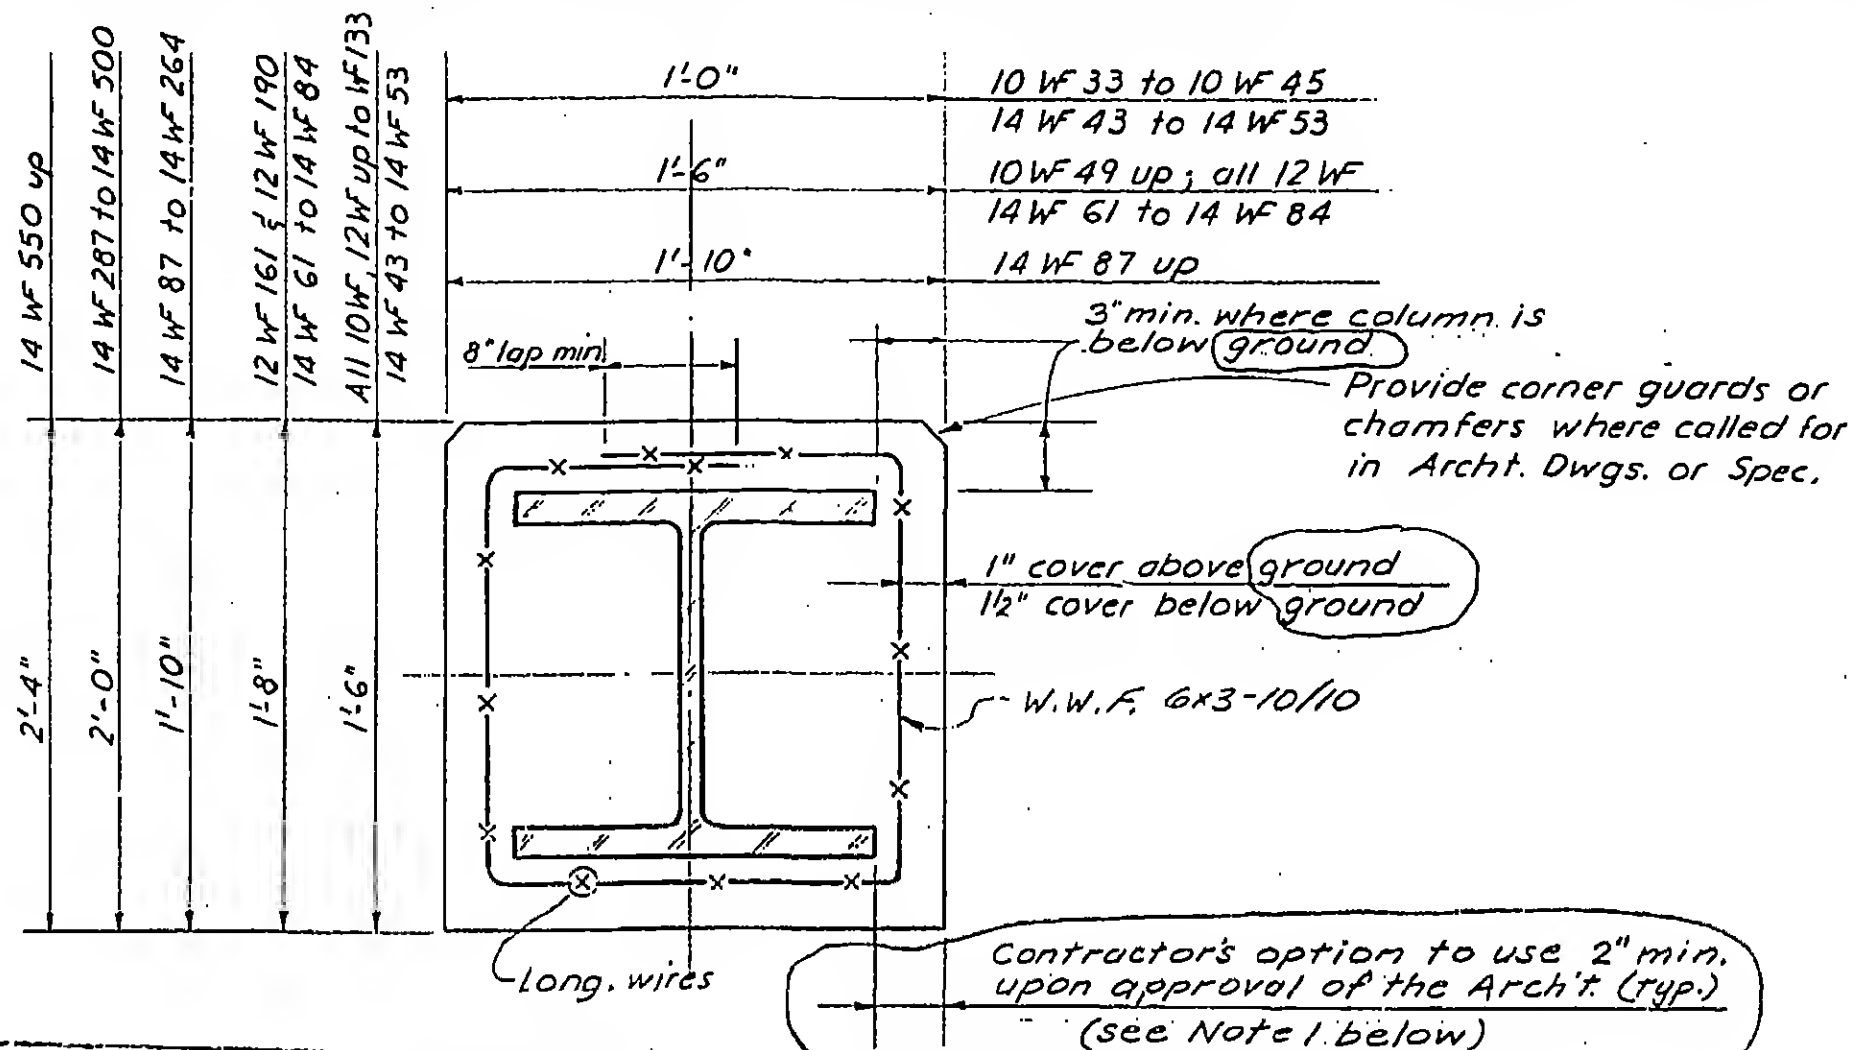 14 WF 550 up
14 WF 287 to 14 WF 500
14 WF 87 to 14 WF 264
12 WF 161 & 12 WF 190
14 WF 61 to 14 WF 84
All 10WF, 12WF up to WF133
14 WF 43 to 14 WF 53
1'-0"
10 WF 33 to 10 WF 45
14 WF 43 to 14 WF 53
1'-6"
10 WF 49 up; all 12 WF
14 WF 61 to 14 WF 84
1'-10"
14 WF 87 up
3" min. where column is
below ground
8" lap min.
Provide corner guards or
chamfers where called for
in Archt. Dwgs. or Spec.
1" cover above ground
1½" cover below ground
2'-4"
2'-0"
1'-10"
1'-8"
1'-6"
W.W.F. 6x3-10/10
Long. wires
Contractor's option to use 2" min.
upon approval of the Arch't. (typ.)
(see Note 1 below)